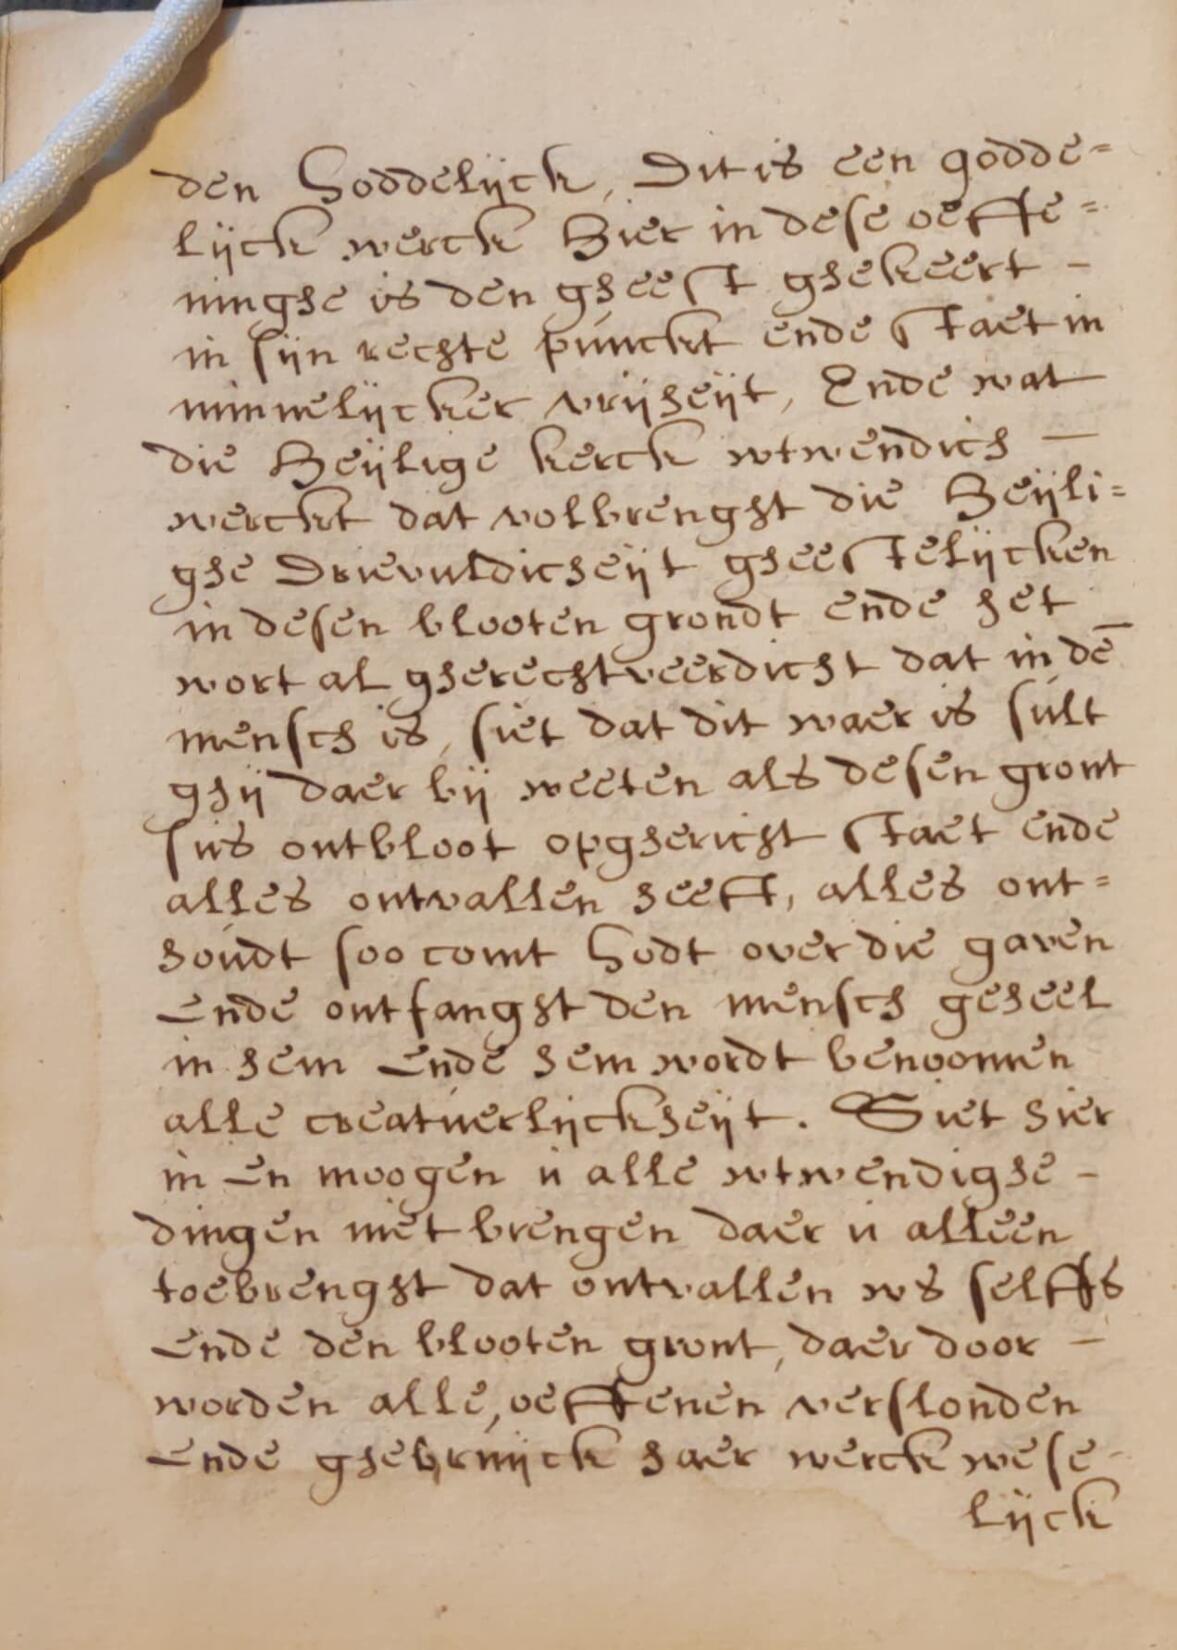 den Goddelijck, Dit is een godde=
lijck werck Hier in dese oeffe=
ninghe is den gheest ghekeert -
in sijn rechte punckt ende staet in
minnelijcker vrijheijt, Ende wat
die Heijlige kerck wtwendich —
werckt dat volbrenght die Heijli=
ghe Drievuldicheijt gheestelijcken
in desen blooten grondt ende het
wort al gherechtveerdicht dat in dē
mensch is, siet dat dit waer is sult
ghij daer bij weeten als desen gront
sus ontbloot opghericht staet ende
alles ontvallen heeft, alles ont=
houdt soo comt Godt over die gaven
Ende ontfanght den mensch geheel
in hem Ende hem wordt benoomen
alle creatuerlijckheijt. Siet hier
in En moogen u alle wtwendighe -
dingen niet brengen daer u alleen
toebrenght dat ontvallen ws selffs
Ende den blooten gront, daer door -
worden alle, oeffenen verslonden
Ende ghebruijck haer werck wese-
lijck